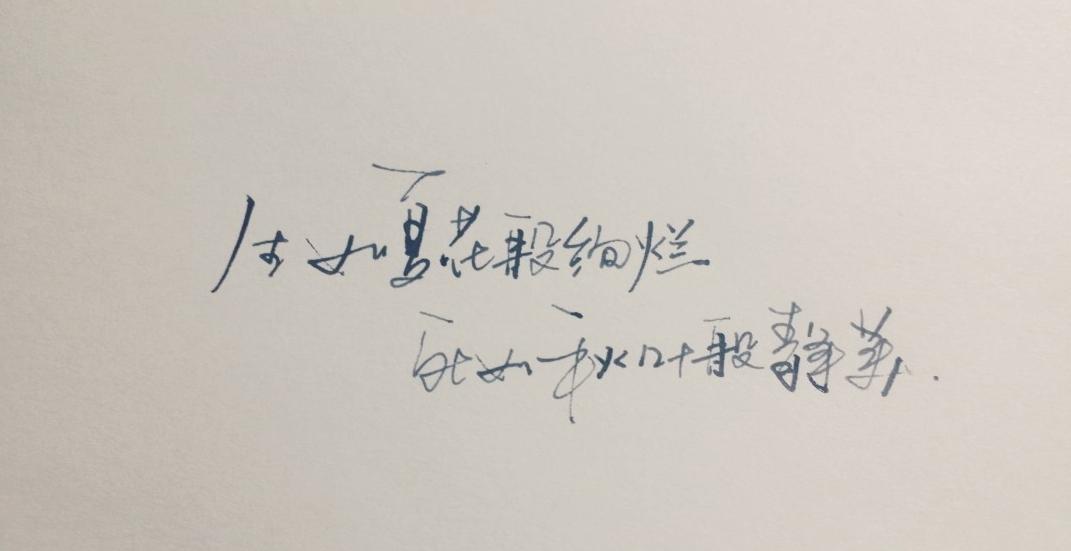 生如夏花般绚烂
死如秋叶般静美.